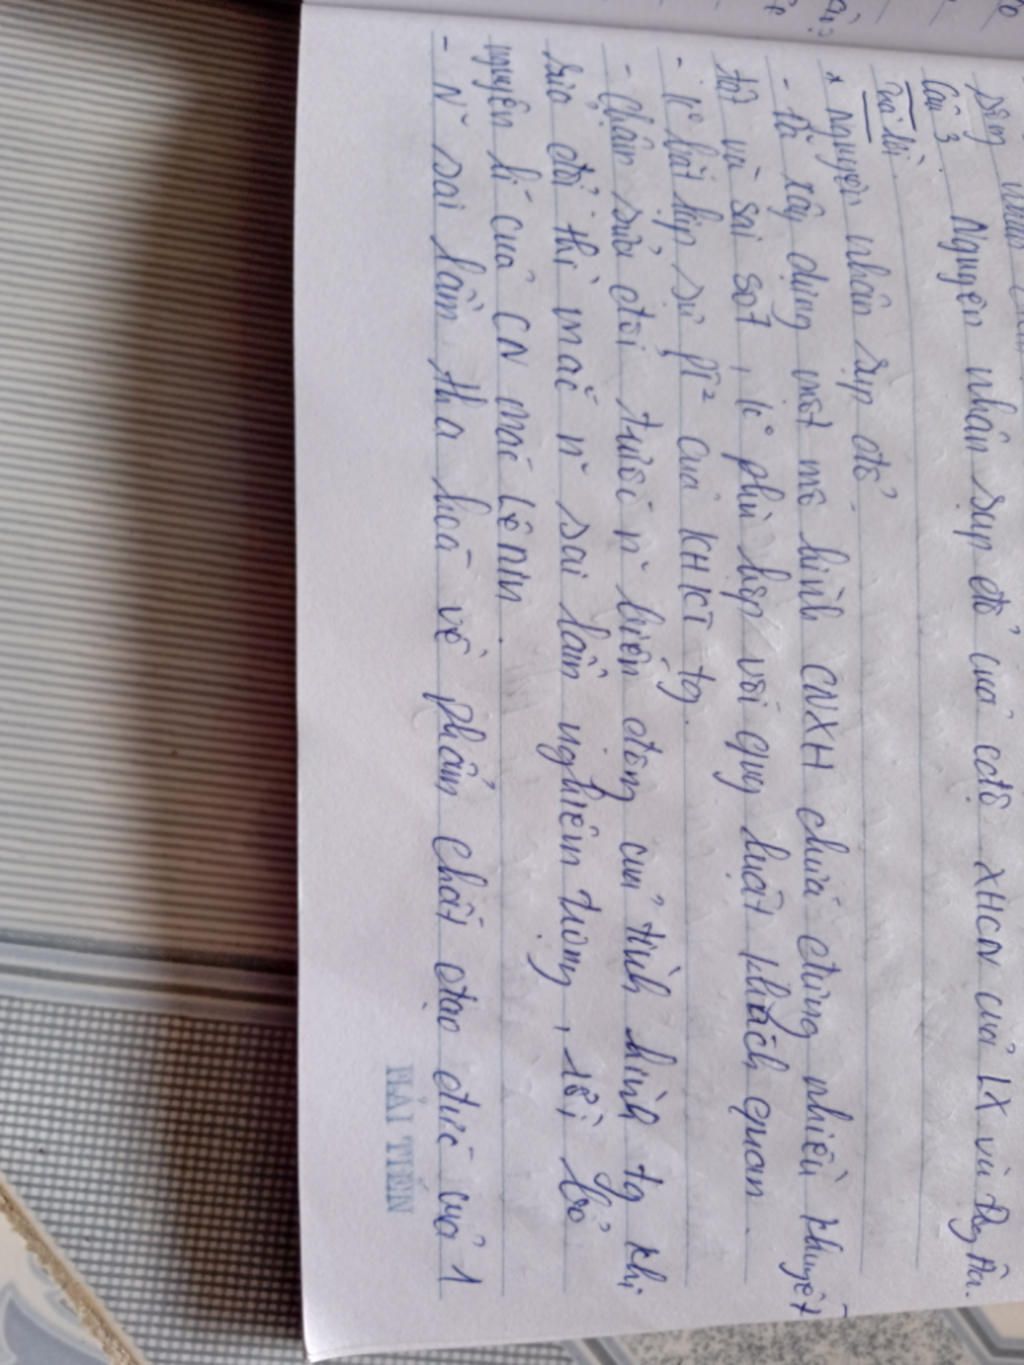 Câu 3. Nguyên nhân sụp đổ của cđộ XHCN của LX và Đg Âu.
Trả lời
* Nguyên nhân sụp đổ
- Đã xây dựng một mô hình CNXH chứa đựng nhiều khuyết
tật và sai sót, k° phù hợp với quy luật khách quan.
- k° bắt kịp sự pt² của KHKT tg.
- Chậm sửa đổi trước n~ biến động của tình hình tg khi
sửa đổi thì mắc n~ sai lầm nghiêm trọng, rời bỏ
nguyên lí của CN mác Lênin.
- N~ sai lầm tha hoá về phẩm chất đạo đức của 1
HẢI TIẾN